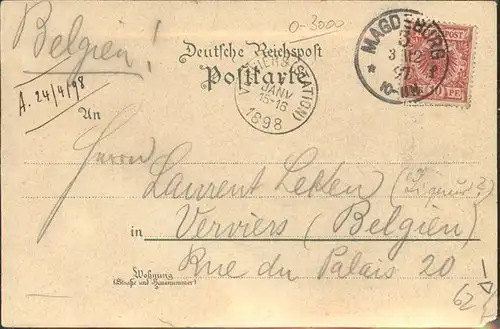 Belgien!
0-3000
A. 24/4/98
Deutsche Reichspost
Postkarte
MAGDEBURG
5
97
10-11
10 PF
VERVIERS (STATION)
JANV
15-16
1898
An
Herrn Laurent Lekken
in Verviers (Belgien)
Rue du Palais 20
Wohnung
(Straße und Hausnummer)
62